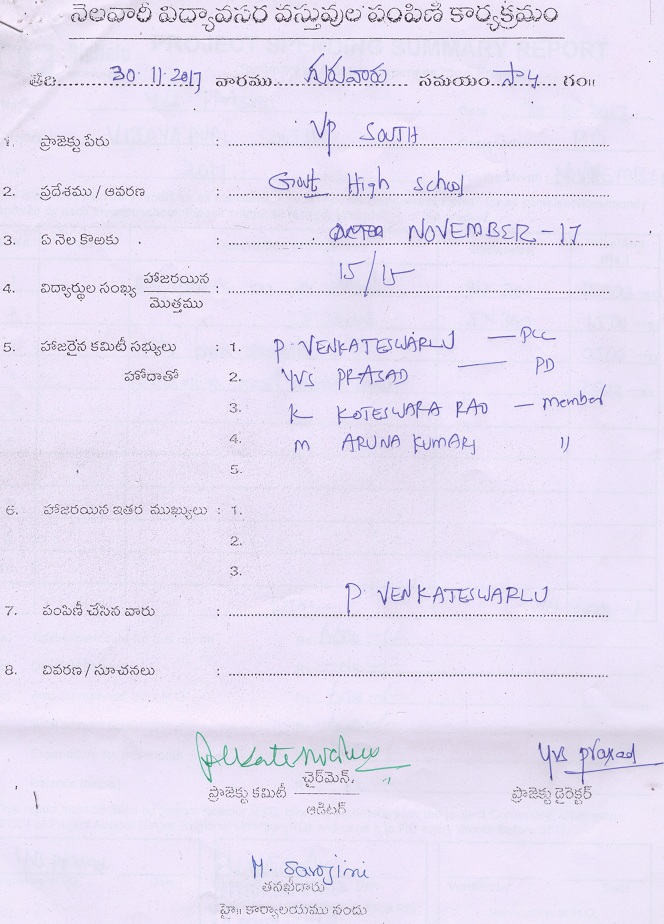 నెలవారీ విద్యావసర వస్తువుల పంపిణి కార్యక్రమం
తేది 30.11.2017 వారము గురువారు సమయం సా4 గం॥
1. ప్రాజెక్టు పేరు : VP SOUTH
2. ప్రదేశము / ఆవరణ : Govt High School
3. ఏ నెల కొఱకు : NOVEMBER - 17
4. విద్యార్థుల సంఖ్య హాజరయిన / మొత్తము : 15/15
5. హాజరైన కమిటీ సభ్యులు : 1. P. VENKATESWARLU — PCC
హోదాతో 2. YVS PRASAD — PD
3. K KOTESWARA RAO — member
4. M ARUNA KUMARI "
5.
6. హాజరయిన ఇతర ముఖ్యులు : 1.
2.
3.
7. పంపిణీ చేసిన వారు : P. VENKATESWARLU
8. వివరణ / సూచనలు :
yvs prasad
ప్రాజెక్టు కమిటీ చైర్‌మెన్, / ఆడిటర్ ప్రాజెక్టు డైరెక్టర్
M. Sarojini
తనఖీదారు
హై॥ కార్యాలయము నందు